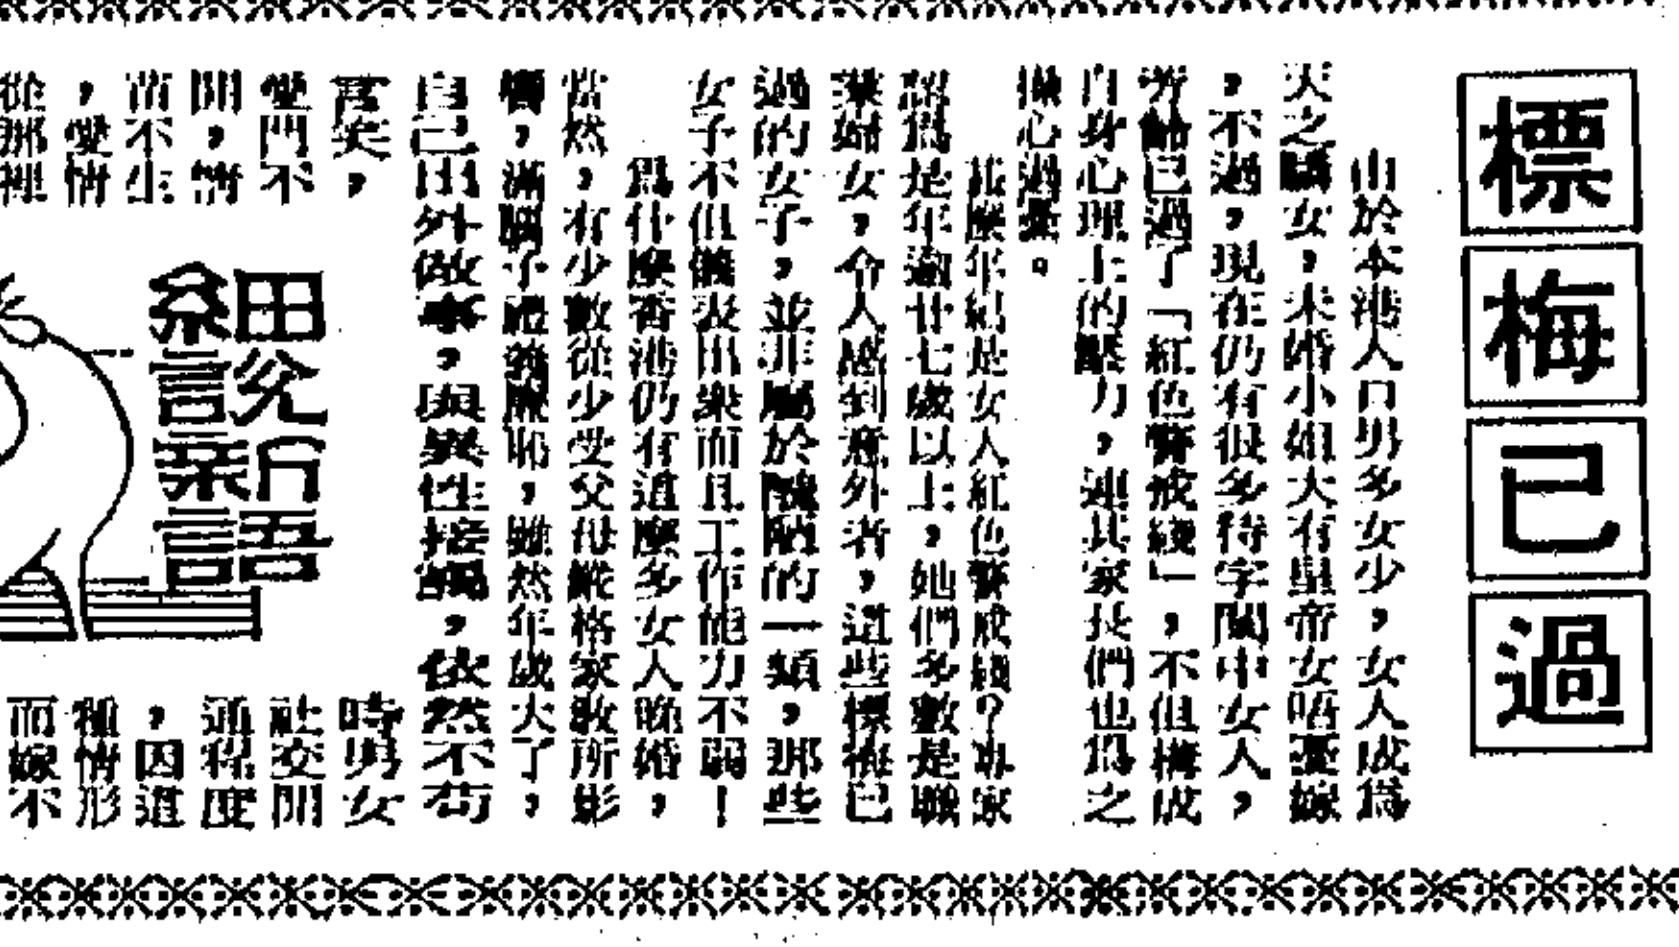 標梅已過
由於本港人口男多女少，女人成爲
天之驕女，未婚小姐大有皇帝女唔憂嫁
，不過，現在仍有很多待字閨中女人，
芳齡已過了「紅色警戒綫」，不但構成
自身心理上的壓力，連其家長們也爲之
操心過憂。
甚麼年紀是女人紅色警戒綫？專家
認爲是年逾廿七歲以上，她們多數是職
業婦女，令人感到意外者，這些標梅已
過的女子，並非屬於醜陋的一類，那些
女子不但儀表出衆而且工作能力不弱！
爲什麼香港仍有這麼多女人晚婚，
當然，有少數從少受父母嚴格家敎所影
響，滿腦子禮義廉恥，雖然年歲大了，
自己出外做事，與異性接觸，依然不苟
言笑，
愛門不
開，情
苗不生
，愛情
從那裡
細說新語
田允行吾
時男女
社交開
通程度
，因這
種情形
而嫁不